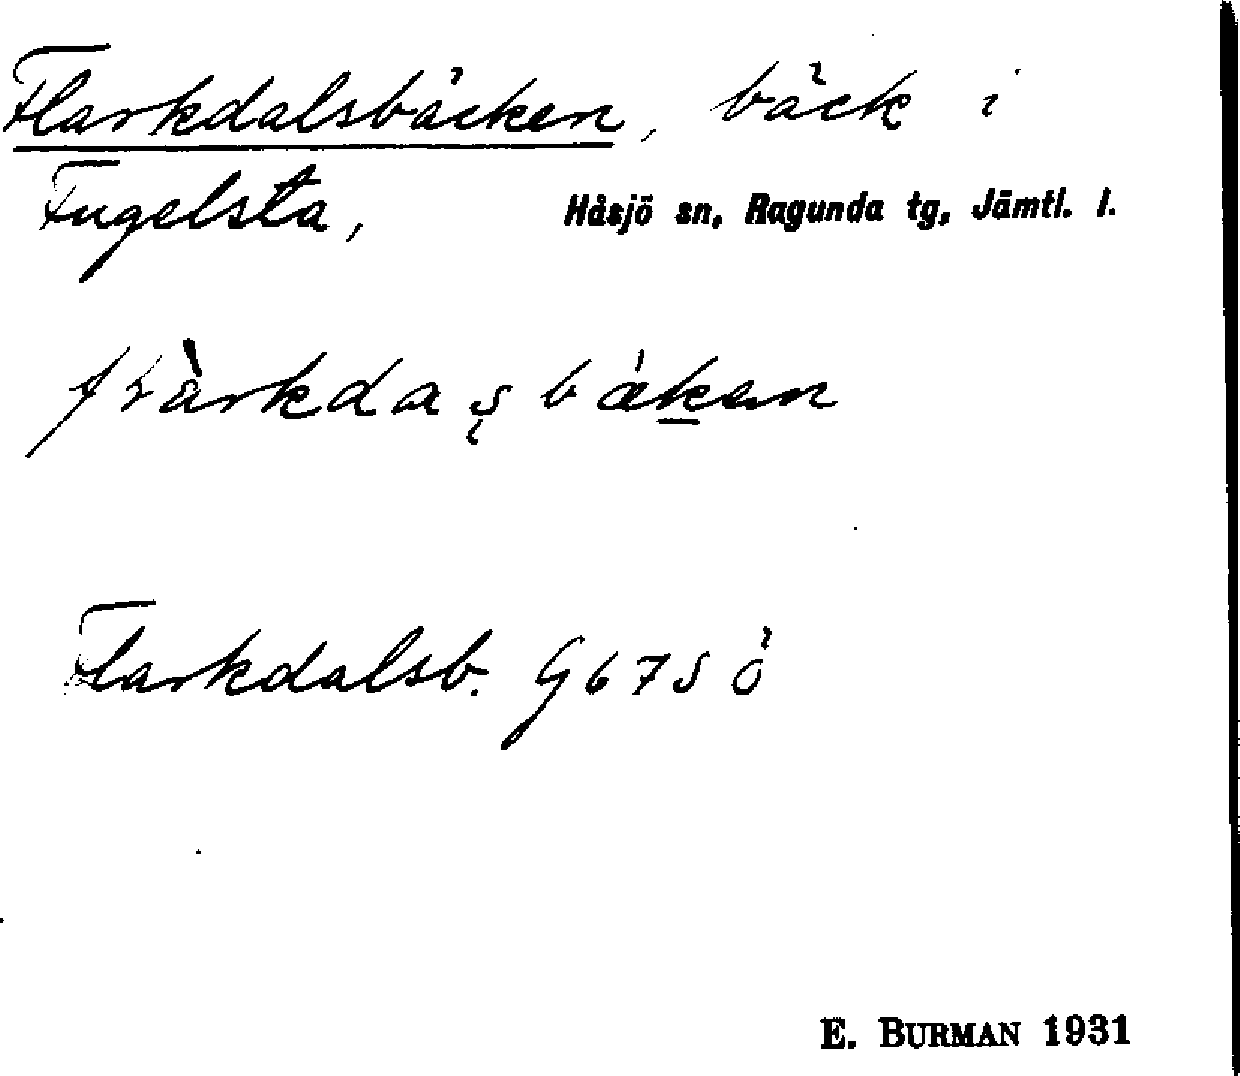 Flarkdalsbäcken, bäck i
Fugelsta, Håsjö sn, Ragunda tg, Jämtl. l.
Flarkdalsb. G67SÖ
E. BURMAN 1931